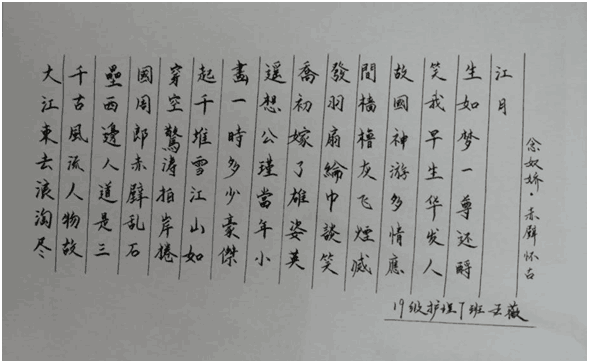 大江東去浪淘尽
千古風流人物故
壘西邊人道是三
国周郎赤壁乱石
穿空驚涛拍岸捲
起千堆雪江山如
畫一時多少豪傑
遥想公瑾當年小
喬初嫁了雄姿英
發羽扇綸巾談笑
間檣櫓灰飞煙滅
故國神游多情應
笑我早生华发人
生如梦一尊还酹
江月
念奴娇·赤壁怀古
19级护理7班 王薇